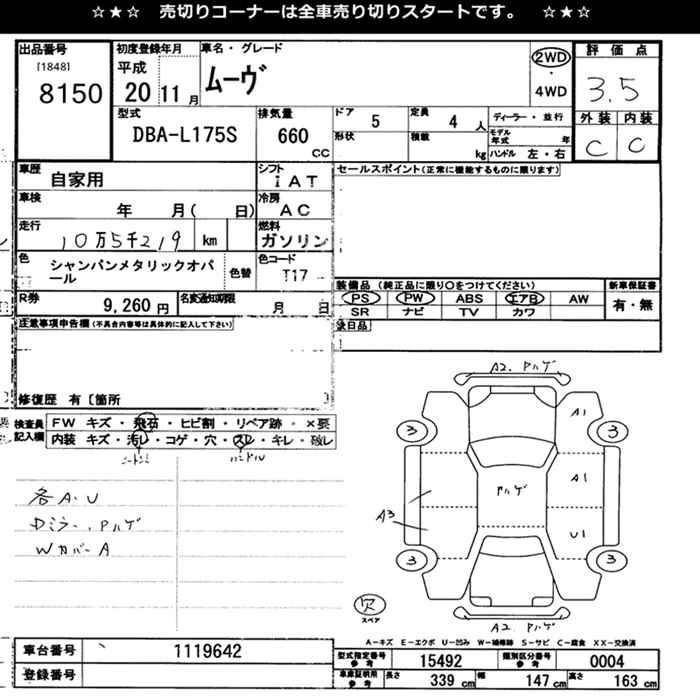 ☆★☆ 売切りコーナーは全車売り切りスタートです。 ☆★☆
出品番号
[1848]
8150
初度登録年月
平成
20 11月
車名・グレード
ムーヴ
2WD
・
4WD
評価点
3.5
外装 内装
C C
型式
DBA-L175S
排気量
660
CC
ドア 5
形状
定員 4 人
積載 kg
ディーラー・並行
モデル年式 年
ハンドル 左・右
車歴
自家用
シフト
iAT
車検
年 月( 日)
冷房
AC
走行
10万5千219 km
燃料
ガソリン
色
シャンパンメタリックオパール
色替
色コード
T17
R券
9,260円
名変通知期限
月 日
セールスポイント(正常に機能するものに限ります)
装備品(純正品に限り○をつけてください)
PS PW ABS エアB AW
SR ナビ TV カワ
新車保証書
有・無
欠日品
注意事項申告欄(不具合内容等は具体的に記入して下さい)
修復歴 有〔箇所 〕
検査員記入欄
FW キズ・飛石・ヒビ割・リペア跡・×要
内装 キズ・汚レ・コゲ・穴・スレ・キレ・破レ
シート ハンドル
各A.U
Dミラー.Pハゲ
WカバーA
A2. Pハゲ
A1
3
3
A1
Pハゲ
A3
U1
3
3
A2 Pハゲ
欠
スペア
A−キズ E−エクボ U−凹み W−補修跡 S−サビ C−腐食 XX−交換済
車台番号
1119642
登録番号
型式指定番号
参考
15492
類別区分番号
参考
0004
車庫証明用
参考
長さ 339 cm
幅 147 cm
高さ 163 cm